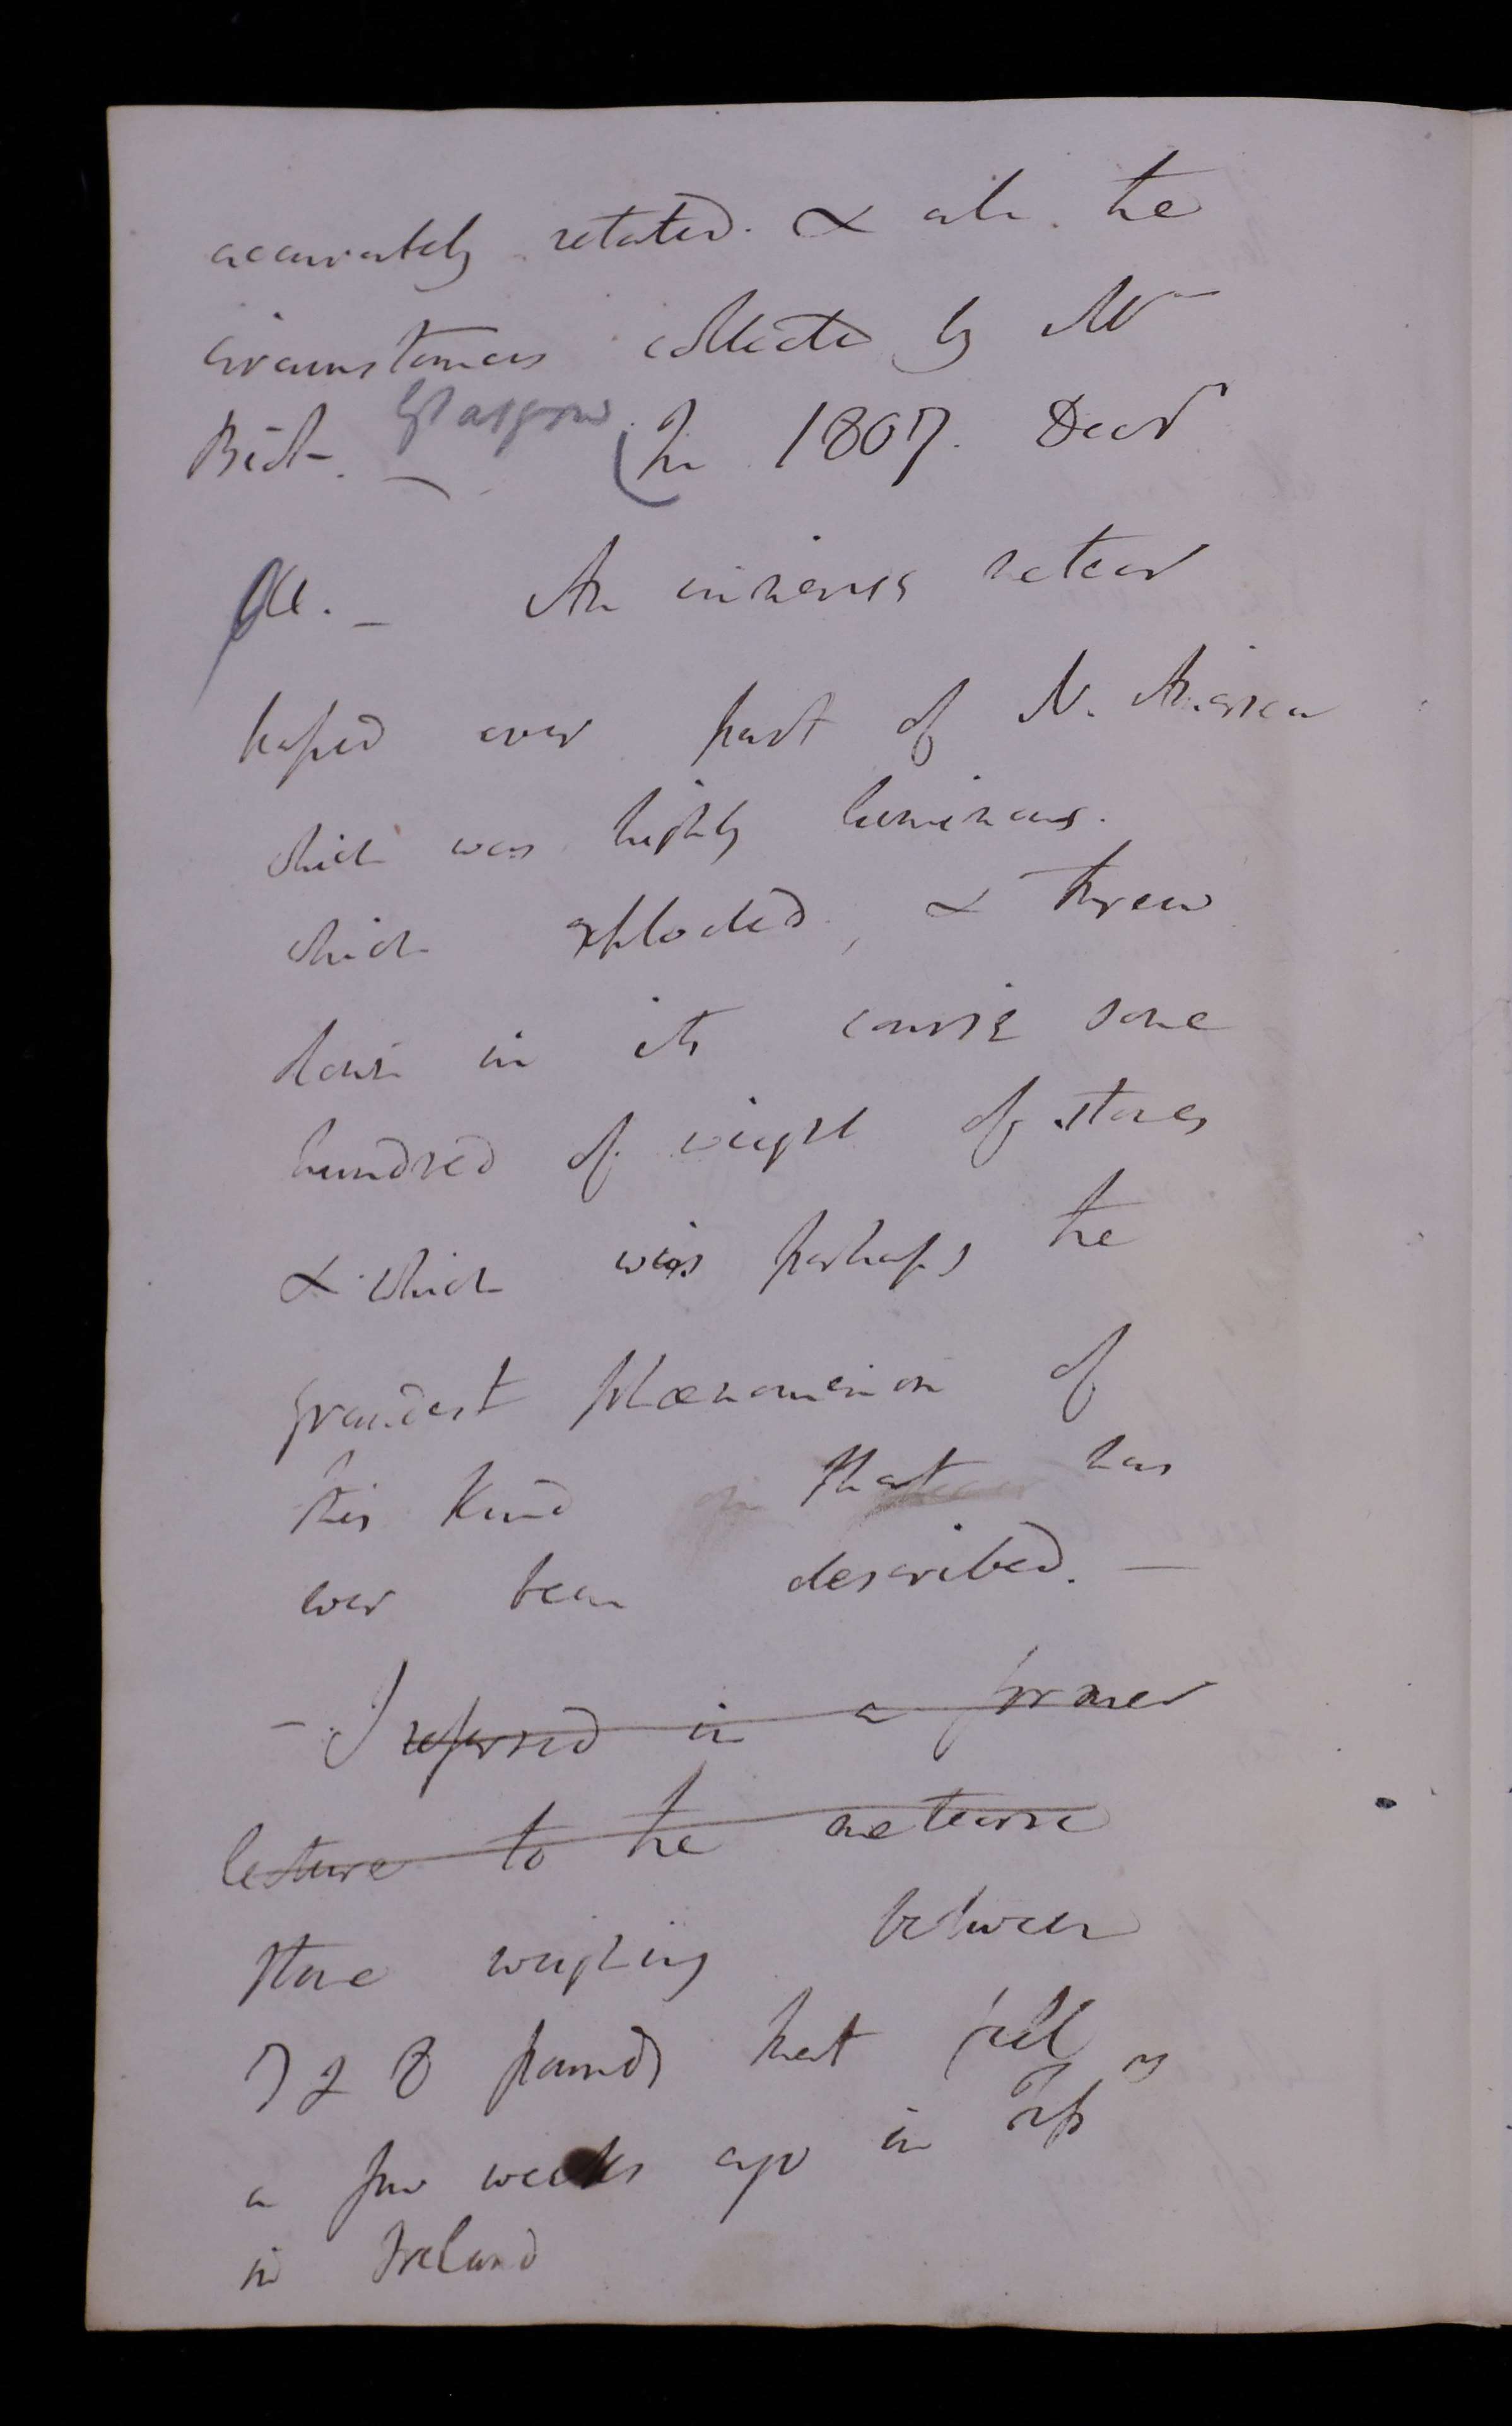 accurately related. & all the
circumstances collected by Mr
Biot. — Glasgow. In 1807. Decr
An immense meteor
passed over part of N. America
which was highly luminous.
which exploded, & threw
down in its course some
hundred of weight of stones
& which was perhaps the
grandest phænomenon of
this kind that has
ever been described. —
— I referred in a former
lecture to the meteoric
stone weighing between
7 & 8 pounds that fell
a few weeks ago in
in Ireland